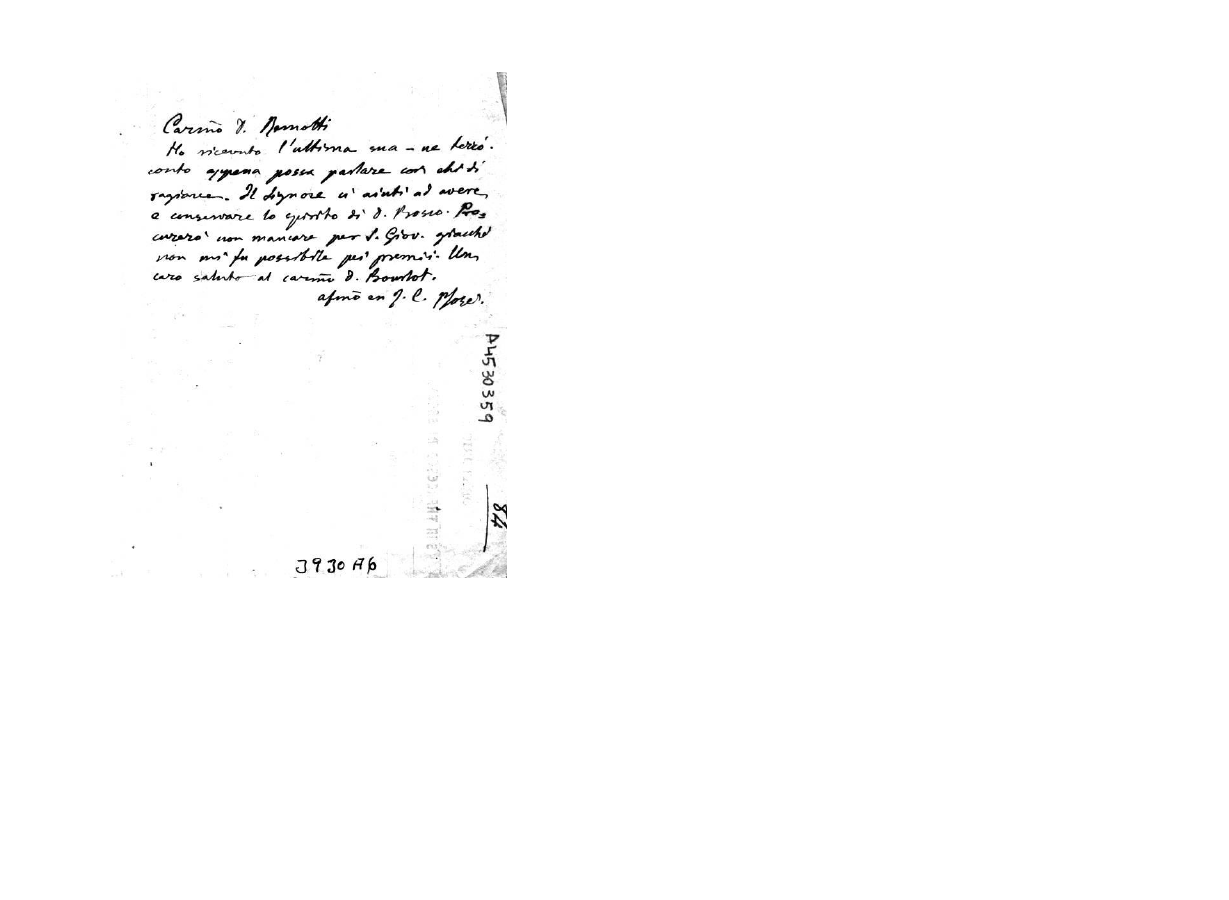 Carmo D. Ramotti
Ho ricevuto l'ultima sua – ne terrò
conto appena possa parlare con chi di
ragione. Il Signore ci aiuti ad avere
e conservare lo spirito di D. Bosco. Pro=
curerò non mancare per S. Giov. giacché
non mi fu possibile pei premii. Un
caro saluto al carmo D. Bourlot.
afmo in J. C.
A4530359
84
3930 A6